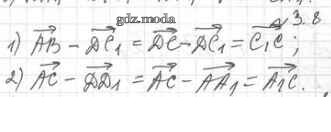 gdz.moda
№ 3.8
1) AB⃗ - DC₁⃗ = DC⃗ - DC₁⃗ = C₁C⃗ ;
2) AC⃗ - DD₁⃗ = AC⃗ - AA₁⃗ = A₁C⃗ .